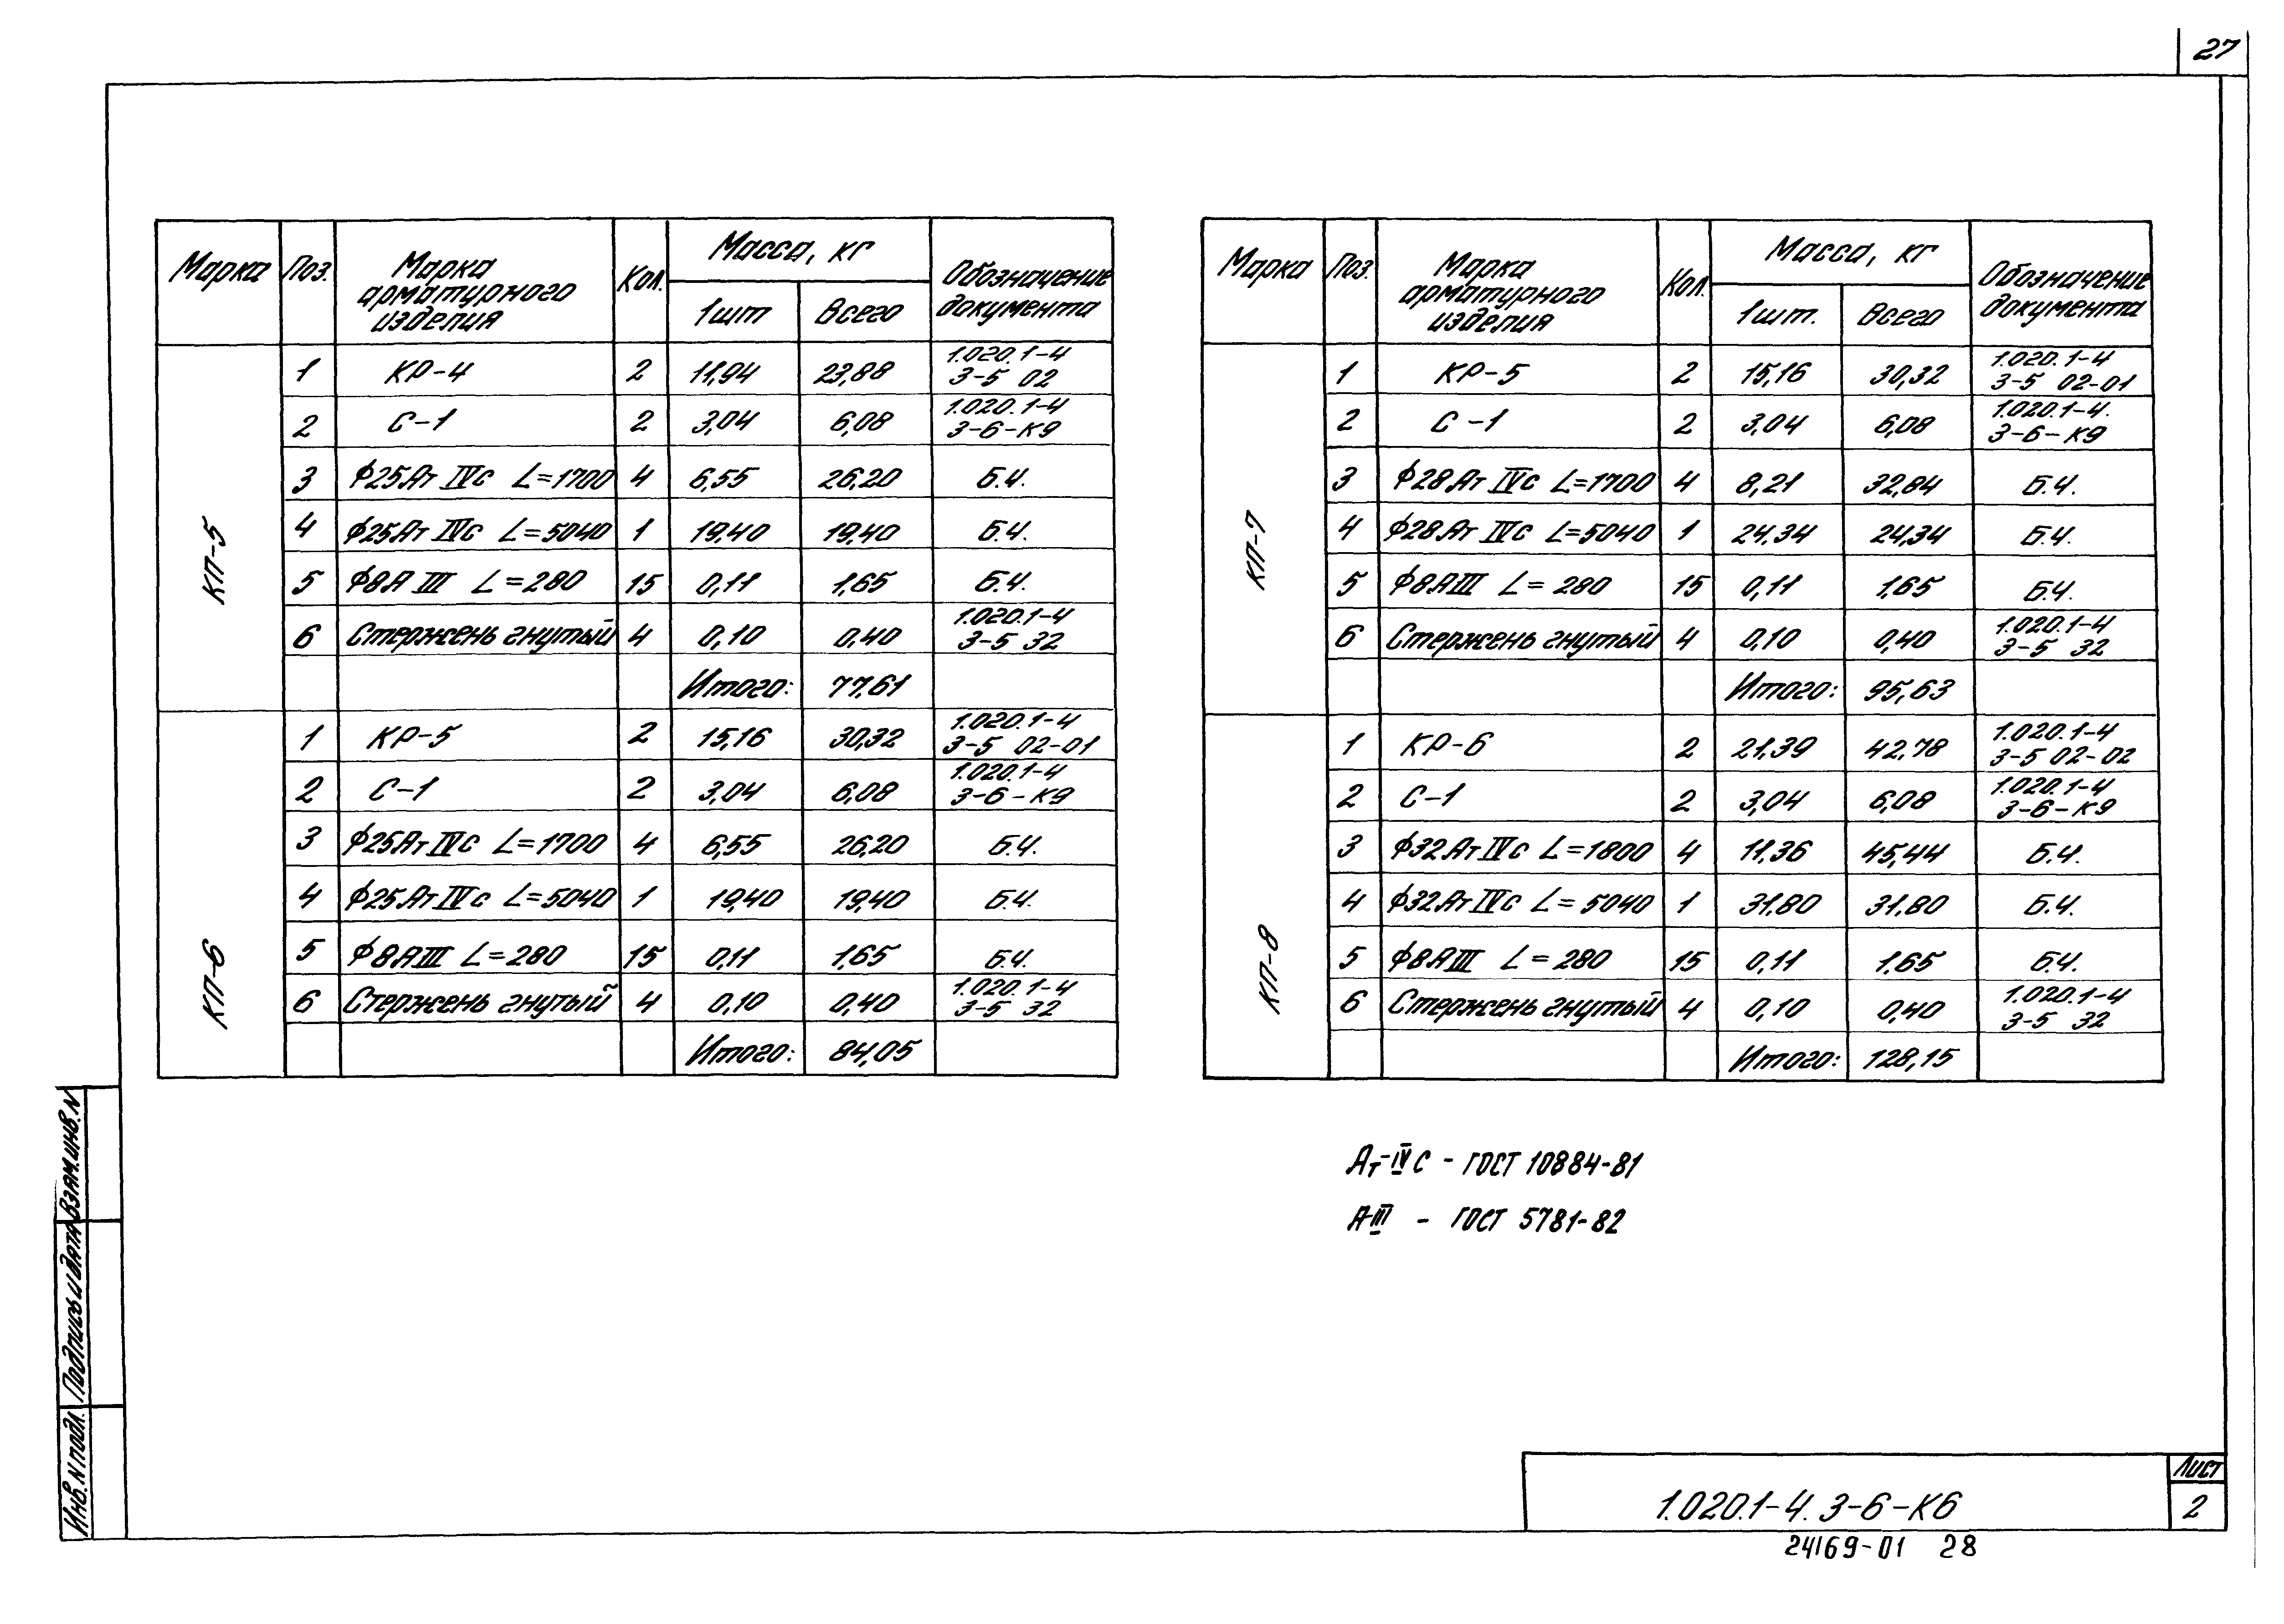 27
Марка Поз. Марка арматурного изделия Кол. Масса, кг Обозначение документа
1шт Всего
КП-5
1 КР-4 2 11,94 23,88 1.020.1-4 3-5 02
2 С-1 2 3,04 6,08 1.020.1-4 3-6-К9
3 ф25Ат IVс L=1700 4 6,55 26,20 Б.Ч.
4 ф25Ат IVс L=5040 1 19,40 19,40 Б.Ч.
5 ф8А III L=280 15 0,11 1,65 Б.Ч.
6 Стержень гнутый 4 0,10 0,40 1.020.1-4 3-5 32
Итого: 77,61
КП-6
1 КР-5 2 15,16 30,32 1.020.1-4 3-5 02-01
2 С-1 2 3,04 6,08 1.020.1-4 3-6-К9
3 ф25Ат IVс L=1700 4 6,55 26,20 Б.Ч.
4 ф25Ат IVс L=5040 1 19,40 19,40 Б.Ч.
5 ф8АIII L=280 15 0,11 1,65 Б.Ч.
6 Стержень гнутый 4 0,10 0,40 1.020.1-4 3-5 32
Итого: 84,05
Марка Поз. Марка арматурного изделия Кол. Масса, кг Обозначение документа
1шт. Всего
КП-7
1 КР-5 2 15,16 30,32 1.020.1-4 3-5 02-01
2 С-1 2 3,04 6,08 1.020.1-4. 3-6-К9
3 ф28Ат IVс L=1700 4 8,21 32,84 Б.Ч.
4 ф28Ат IVс L=5040 1 24,34 24,34 Б.Ч.
5 ф8АIII L=280 15 0,11 1,65 Б.Ч.
6 Стержень гнутый 4 0,10 0,40 1.020.1-4 3-5 32
Итого: 95,63
КП-8
1 КР-6 2 21,39 42,78 1.020.1-4 3-5 02-02
2 С-1 2 3,04 6,08 1.020.1-4 3-6-К9
3 ф32Ат IVс L=1800 4 11,36 45,44 Б.Ч.
4 ф32Ат IVс L=5040 1 31,80 31,80 Б.Ч.
5 ф8АIII L=280 15 0,11 1,65 Б.Ч.
6 Стержень гнутый 4 0,10 0,40 1.020.1-4 3-5 32
Итого: 128,15
Ат-IVС - ГОСТ 10884-81
А-III - ГОСТ 5781-82
Инв. N подл. Подпись и дата Взам. инв. N
1.020.1-4. 3-6-К6
Лист
2
24169-01 28